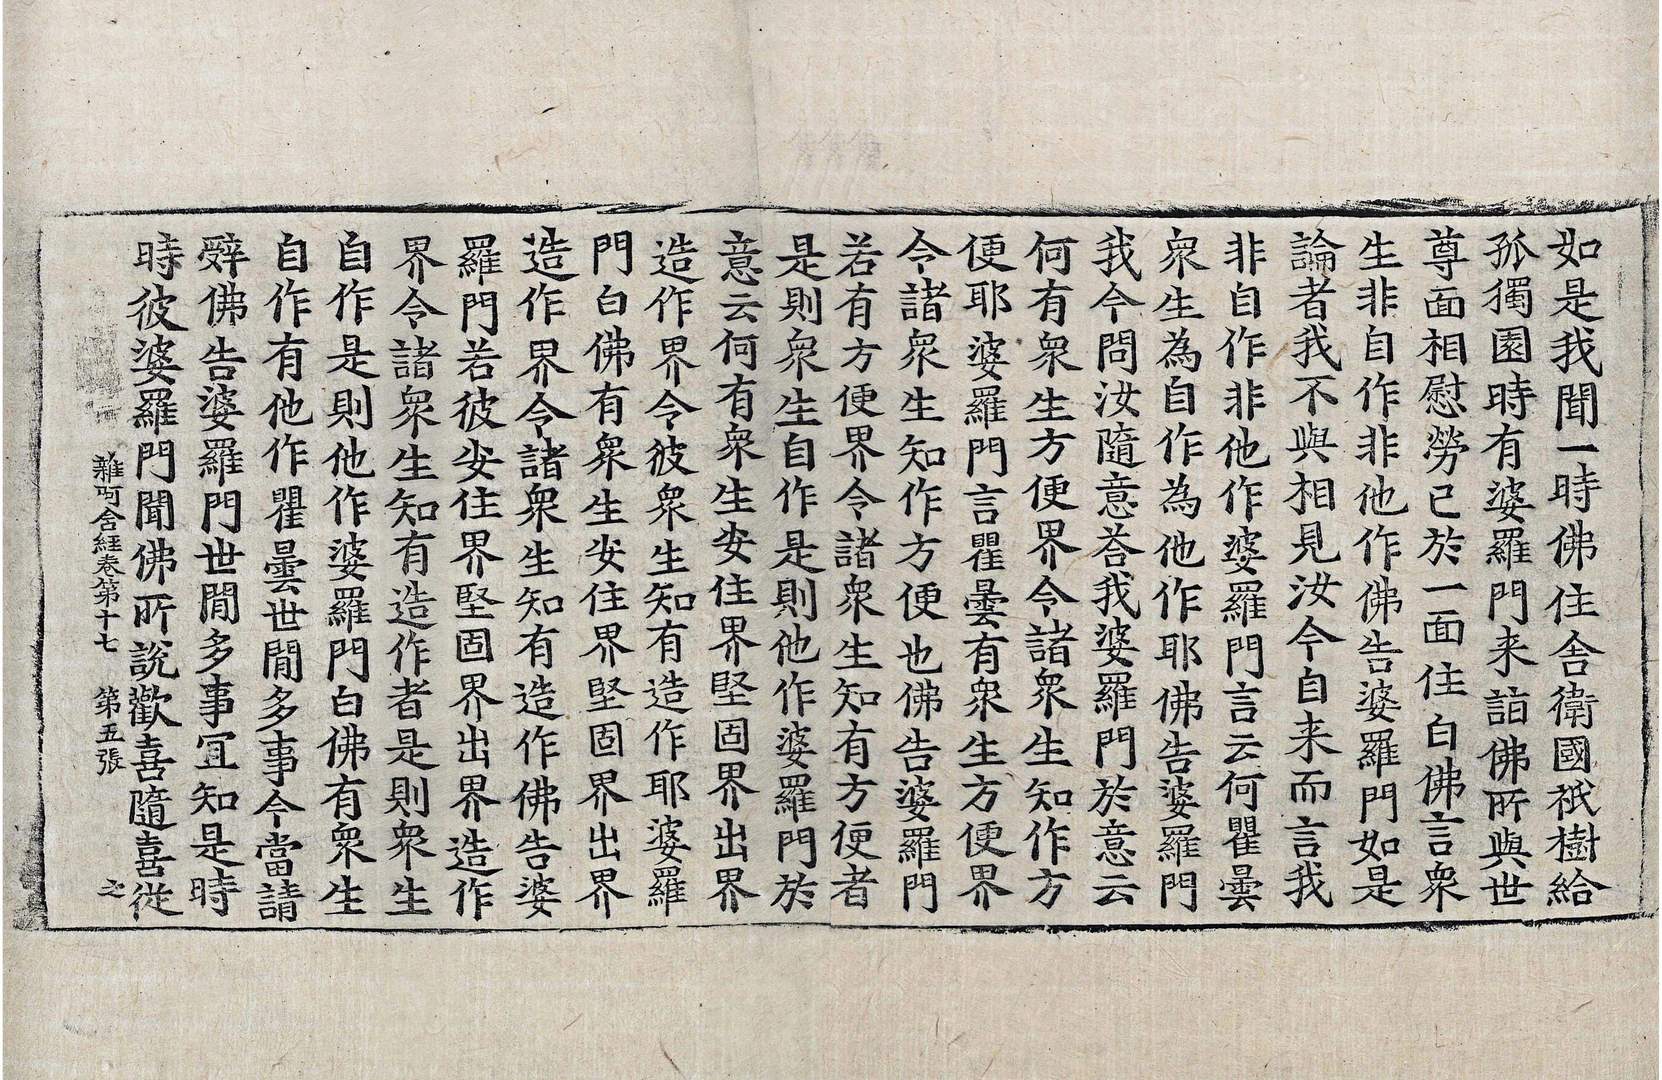 如是我聞一時佛住舍衛國祇樹給
孤獨園時有婆羅門来詣佛所與世
尊面相慰勞已於一面住白佛言衆
生非自作非他作佛告婆羅門如是
論者我不與相見汝今自来而言我
非自作非他作婆羅門言云何瞿曇
衆生為自作為他作耶佛告婆羅門
我今問汝隨意荅我婆羅門於意云
何有衆生方便界令諸衆生知作方
便耶婆羅門言瞿曇有衆生方便界
令諸衆生知作方便也佛告婆羅門
若有方便界令諸衆生知有方便者
是則衆生自作是則他作婆羅門於
意云何有衆生安住界堅固界出界
造作界令彼衆生知有造作耶婆羅
門白佛有衆生安住界堅固界出界
造作界令諸衆生知有造作佛告婆
羅門若彼安住界堅固界出界造作
界令諸衆生知有造作者是則衆生
自作是則他作婆羅門白佛有衆生
自作有他作瞿曇世閒多事今當請
辝佛告婆羅門世閒多事宜知是時
時彼婆羅門聞佛所說歡喜隨喜從
雜阿含經卷第十七 第五張 之